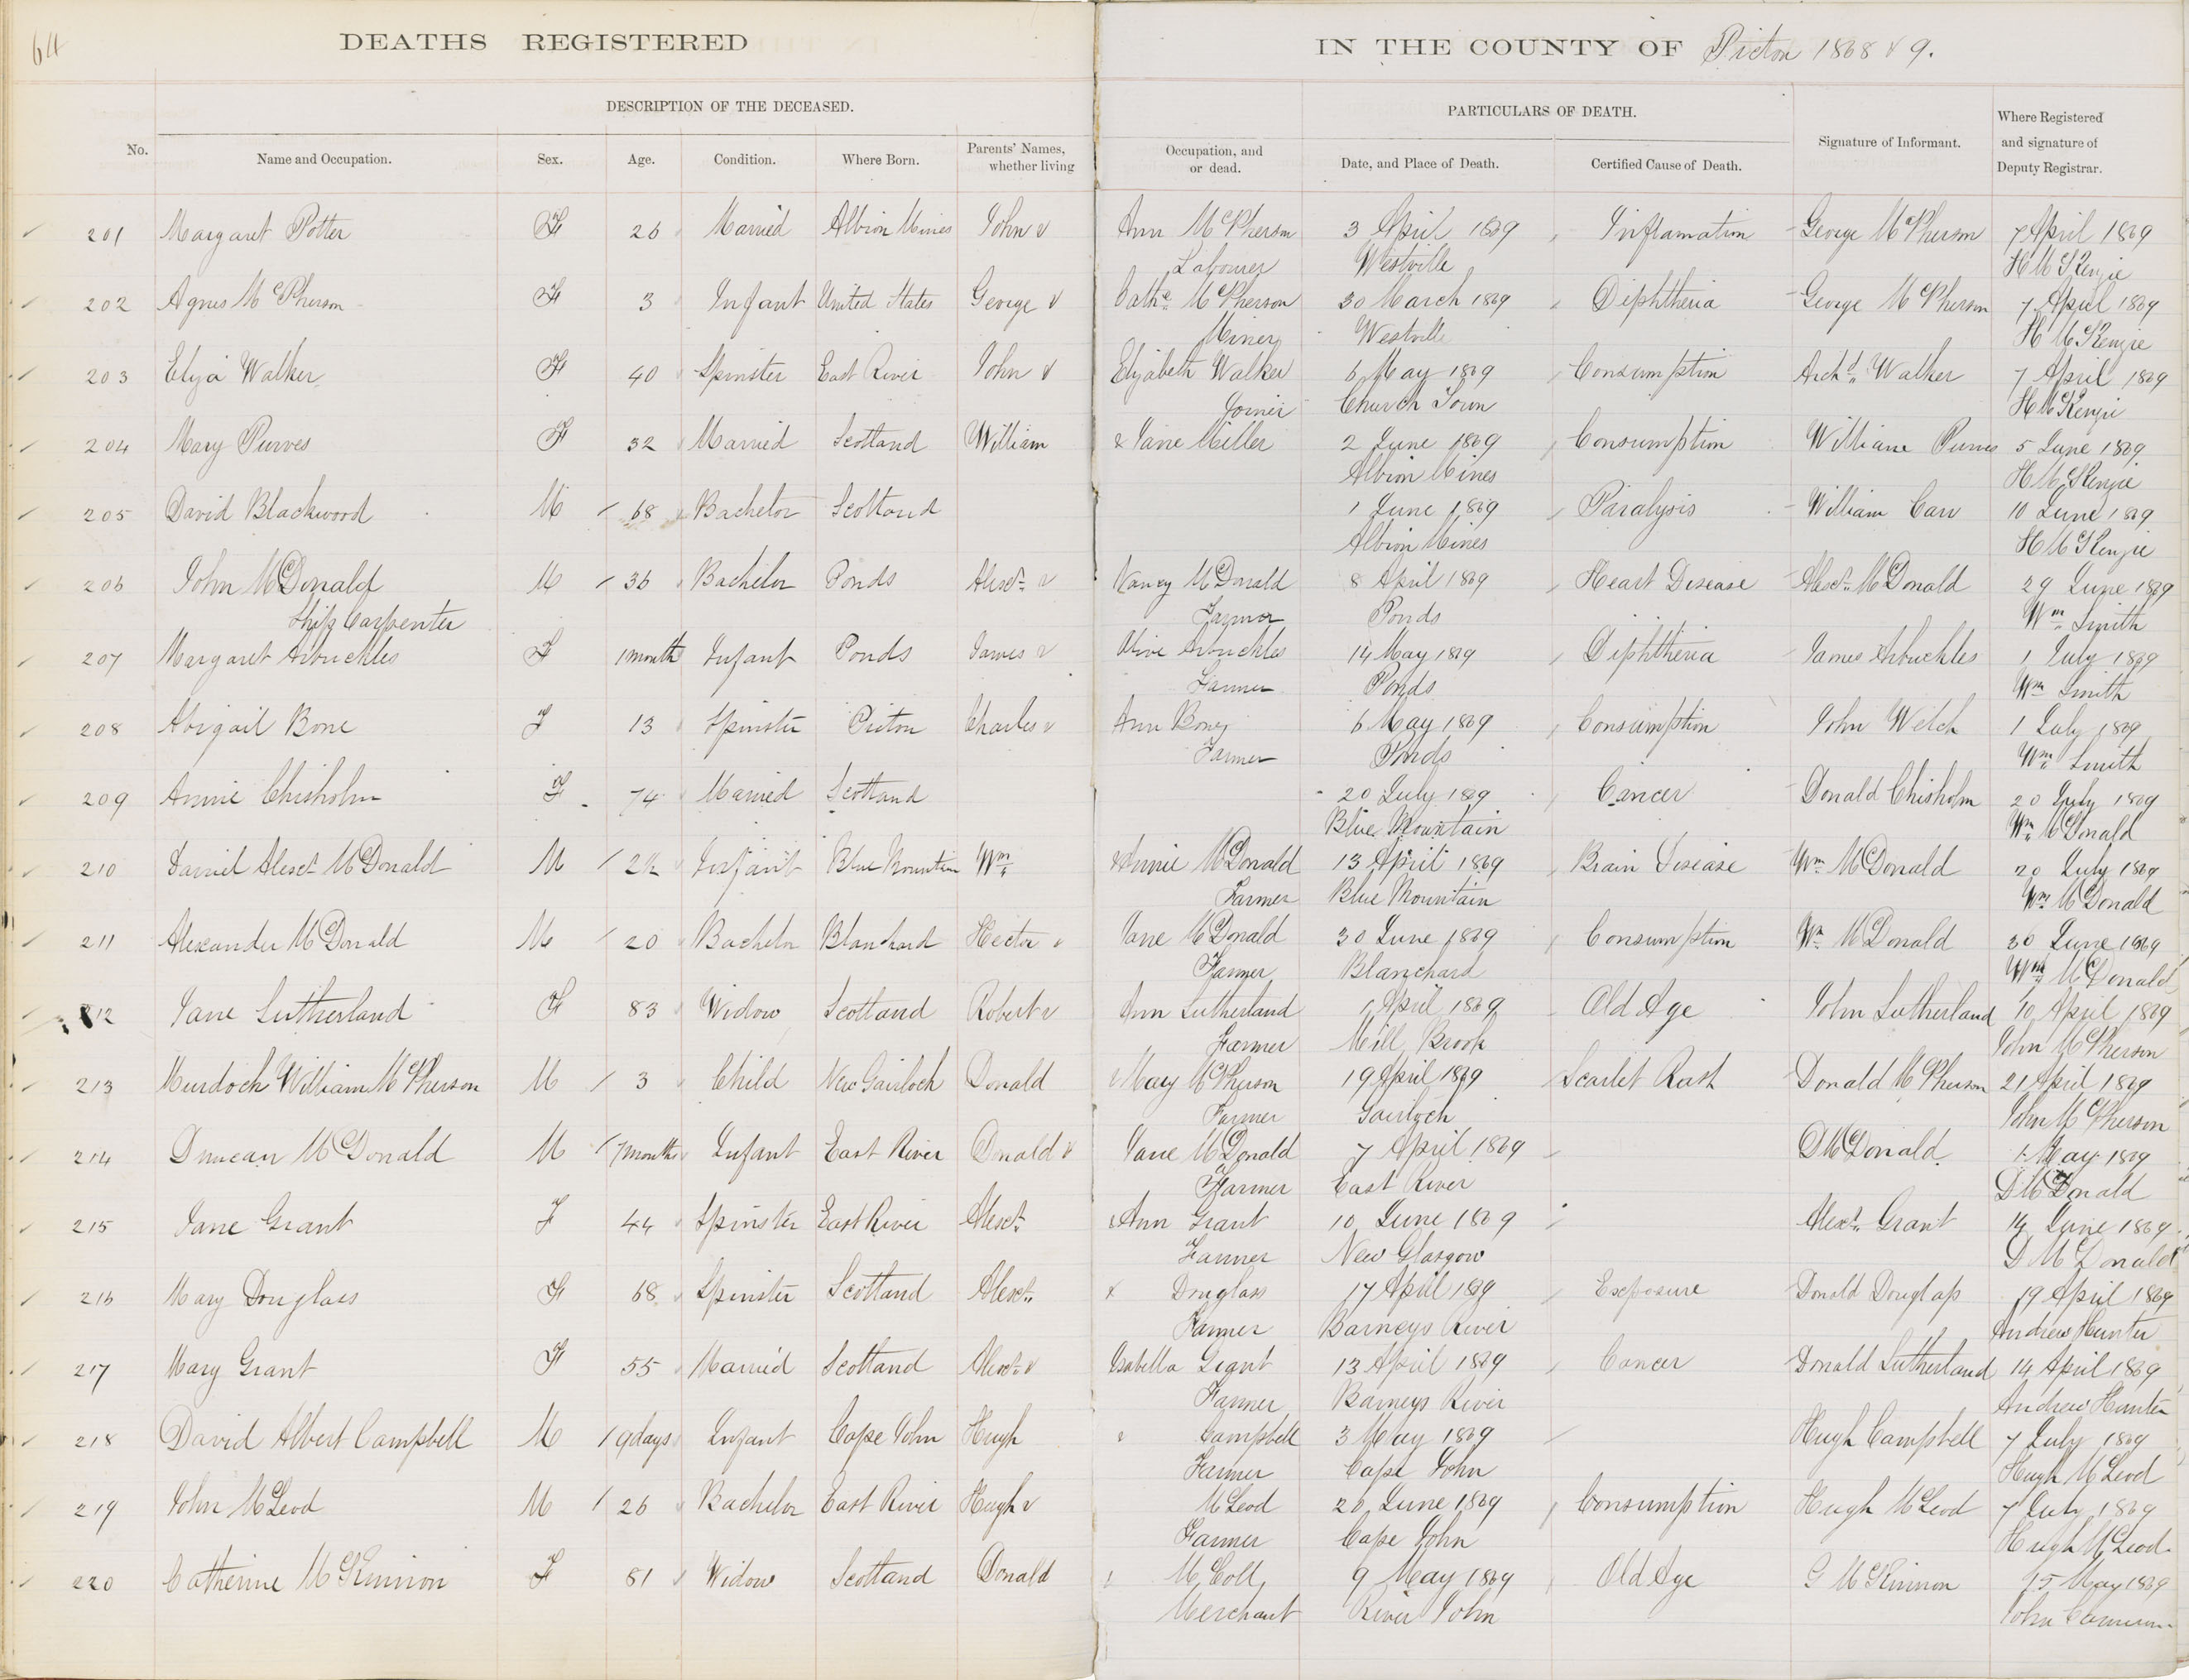 64
DEATHS REGISTERED IN THE COUNTY OF Pictou 1868 & 9.
DESCRIPTION OF THE DECEASED. PARTICULARS OF DEATH.
No. Name and Occupation. Sex. Age. Condition. Where Born. Parents' Names, whether living Occupation, and or dead. Date, and Place of Death. Certified Cause of Death. Signature of Informant. Where Registered and signature of Deputy Registrar.
201 Margaret Potter F 26 Married Albion Mines John & Ann McPherson 3 April 1869 Inflamation George McPherson 7 April 1869
Labourer Westville H McKenzie
202 Agnes McPherson F 3 Infant United States George & Cathe McPherson 30 March 1869 Diphtheria George McPherson 7 April 1869
Miner Westville H McKenzie
203 Eliza Walker F 40 Spinster East River John & Elizabeth Walker 6 May 1869 Consumption Archd Walker 7 April 1869
Joiner Church Town H McKenzie
204 Mary Purves F 32 Married Scotland William & Jane Miller 2 June 1869 Consumption William Purves 5 June 1869
Albion Mines H McKenzie
205 David Blackwood M 68 Bachelor Scotland 1 June 1869 Paralysis William Carr 10 June 1869
Albion Mines H McKenzie
206 John McDonald M 36 Bachelor Ponds Alexr & Nancy McDonald 8 April 1869 Heart Disease Alexr McDonald 29 June 1869
Ship Carpenter Farmer Ponds Wm Smith
207 Margaret Arbuckles F 1 month Infant Ponds James & Olive Arbuckles 14 May 1869 Diphtheria James Arbuckles 1 July 1869
Farmer Ponds Wm Smith
208 Abigail Bone F 13 Spinster Pictou Charles & Ann Bone 6 May 1869 Consumption John Welch 1 July 1869
Farmer Ponds Wm Smith
209 Annie Chisholm F 74 Married Scotland 20 July 1869 Cancer Donald Chisholm 20 July 1869
Blue Mountain Wm McDonald
210 Daniel Alexr McDonald M 2½ Infant Blue Mountain Wm & Annie McDonald 13 April 1869 Brain Disease Wm McDonald 20 July 1869
Farmer Blue Mountain Wm McDonald
211 Alexander McDonald M 20 Bachelor Blanchard Hector & Jane McDonald 30 June 1869 Consumption Wm McDonald 30 June 1869
Farmer Blanchard Wm McDonald
212 Jane Sutherland F 83 Widow Scotland Robert & Ann Sutherland 1 April 1869 Old Age John Sutherland 10 April 1869
Farmer Mill Brook John McPherson
213 Murdoch William McPherson M 3 Child New Gairloch Donald & Mary McPherson 19 April 1869 Scarlet Rash Donald McPherson 21 April 1869
Farmer Gairloch John McPherson
214 Duncan McDonald M 7 months Infant East River Donald & Jane McDonald 7 April 1869 D McDonald 1 May 1869
Farmer East River D McDonald
215 Jane Grant F 44 Spinster East River Alexr & Ann Grant 10 June 1869 Alexr Grant 14 June 1869
Farmer New Glasgow D McDonald
216 Mary Douglass F 68 Spinster Scotland Alexr & Douglass 17 April 1869 Exposure Donald Douglass 19 April 1869
Farmer Barneys River Andrew Hunter
217 Mary Grant F 55 Married Scotland Alexr & Isabella Grant 13 April 1869 Cancer Donald Sutherland 14 April 1869
Farmer Barneys River Andrew Hunter
218 David Albert Campbell M 9 days Infant Cape John Hugh & Campbell 3 May 1869 Hugh Campbell 7 July 1869
Farmer Cape John Hugh McLeod
219 John McLeod M 26 Bachelor East River Hugh & McLeod 20 June 1869 Consumption Hugh McLeod 7 July 1869
Farmer Cape John Hugh McLeod
220 Catherine McKinnon F 81 Widow Scotland Donald & McColl 9 May 1869 Old Age G McKinnon 15 May 1869
Merchant River John John